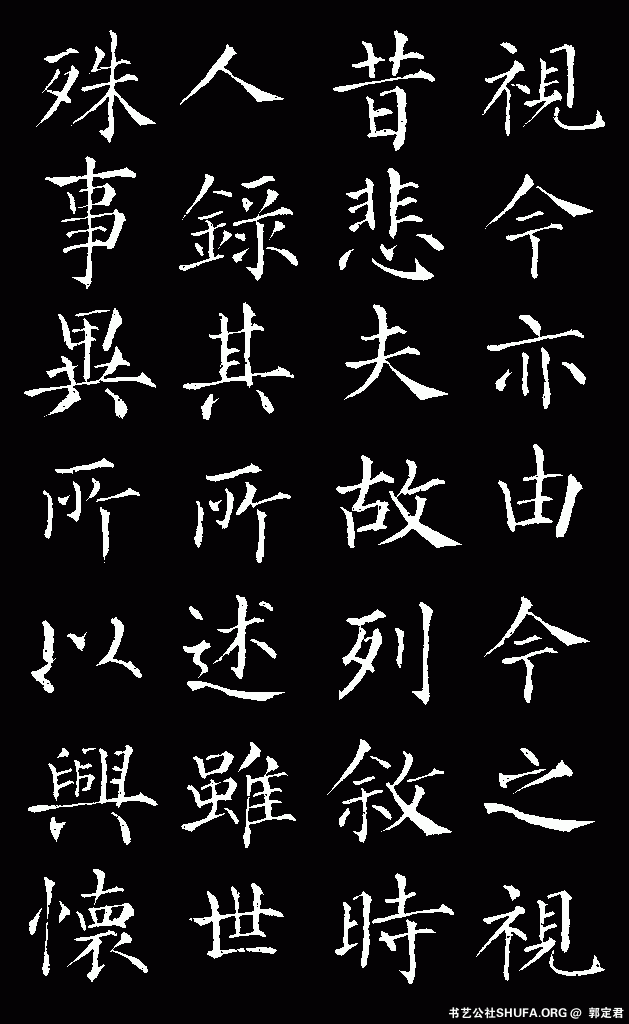 視今亦由今之視
昔悲夫故列敘時
人錄其所述雖世
殊事異所以興懷
书艺公社SHUFA.ORG @ 郭定君